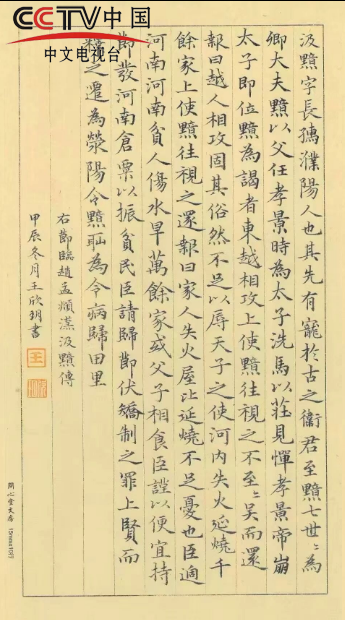 CCTV中国
中文电视台
汲黯字長孺濮陽人也其先有寵於古之衛君至黯七世〻為
卿大夫黯以父任孝景時為太子洗馬以莊見憚孝景帝崩
太子即位黯為謁者東越相攻上使黯往視之不至〻吳而還
報曰越人相攻固其俗然不足以辱天子之使河內失火延燒千
餘家上使黯往視之還報曰家人失火屋比延燒不足憂也臣過
河南河南貧人傷水旱萬餘家或父子相食臣謹以便宜持
節發河南倉粟以振貧民臣請歸節伏矯制之罪上賢而
釋之遷為滎陽令黯恥為令病歸田里
右節臨趙孟頫漢汲黯傳
甲辰冬月王欣玥書